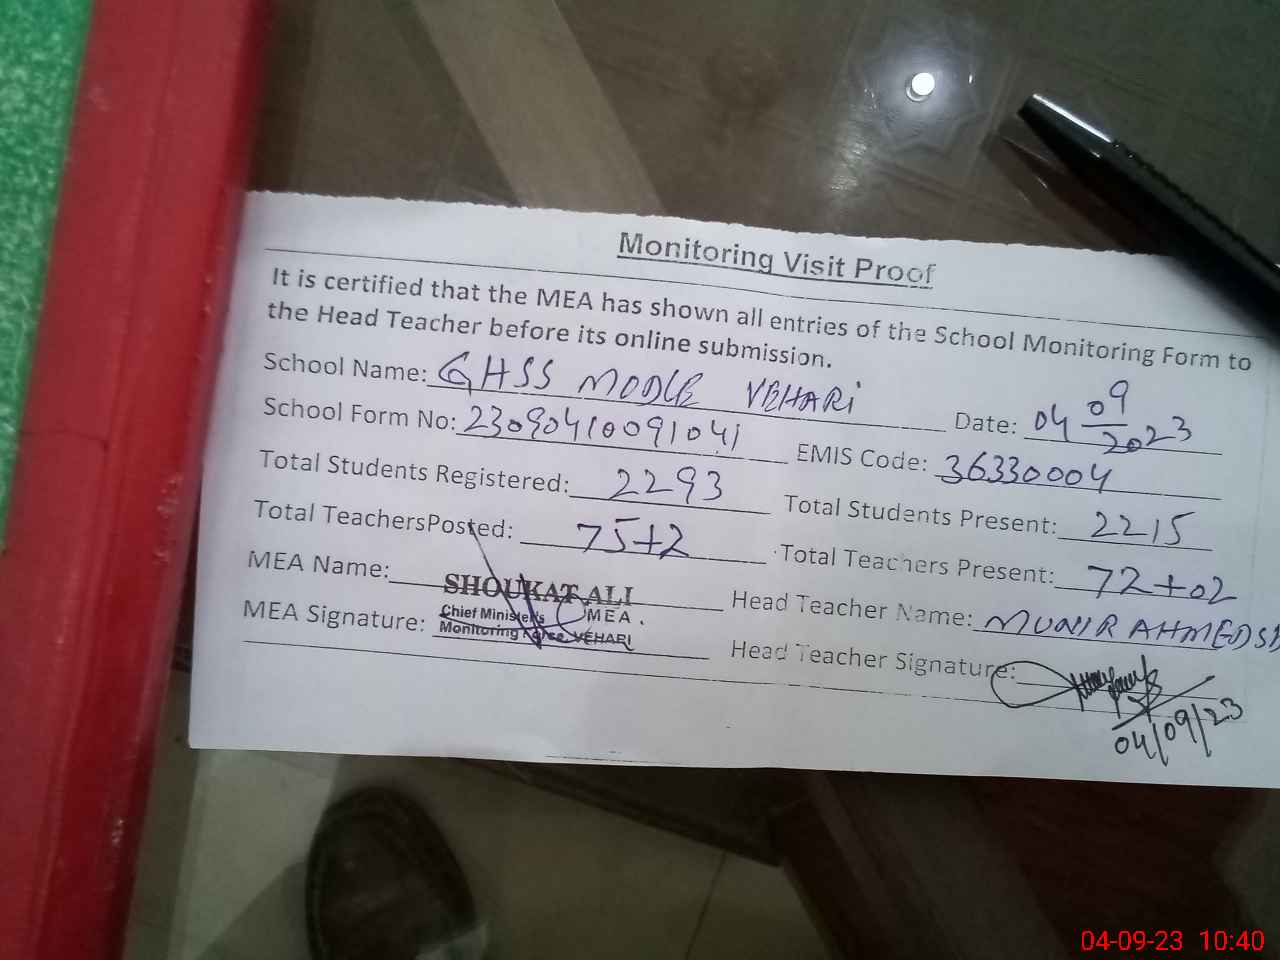 Monitoring Visit Proof
It is certified that the MEA has shown all entries of the School Monitoring Form to
the Head Teacher before its online submission.
School Name: GHSS MODLE VEHARi Date: 04 09 2023
School Form No: 2309041009104 EMIS Code: 36330004
Total Students Registered: 2293 Total Students Present: 2215
Total TeachersPosted: 75+2 Total Teachers Present: 72+02
MEA Name: SHOUKAT ALI Head Teacher Name: MUNIR AHMED
Chief Minister's MEA.
MEA Signature: Monitoring Force VEHARI Head Teacher Signature:
04/09/23
04-09-23 10:40